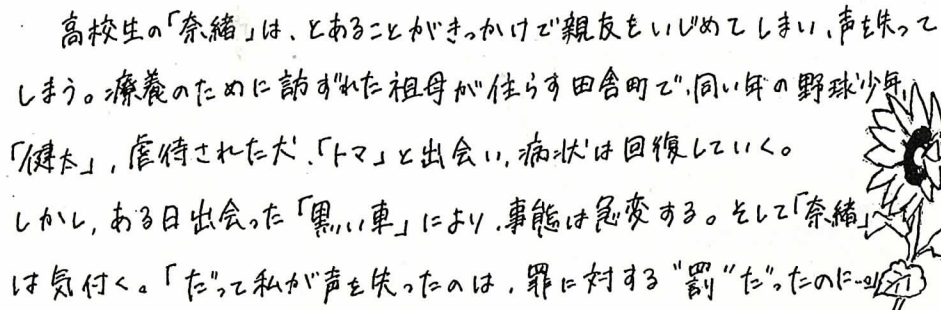 高校生の「奈緒」は、とあることがきっかけで親友をいじめてしまい、声を失って
しまう。療養のために訪ずれた祖母が住らす田舎町で、同い年の野球少年、
「健太」、虐待された犬、「トマ」と出会い、病状は回復していく。
しかし、ある日出会った「黒い車」により、事態は急変する。そして「奈緒」
は気付く。「だって私が声を失ったのは、罪に対する"罰"だったのに…」